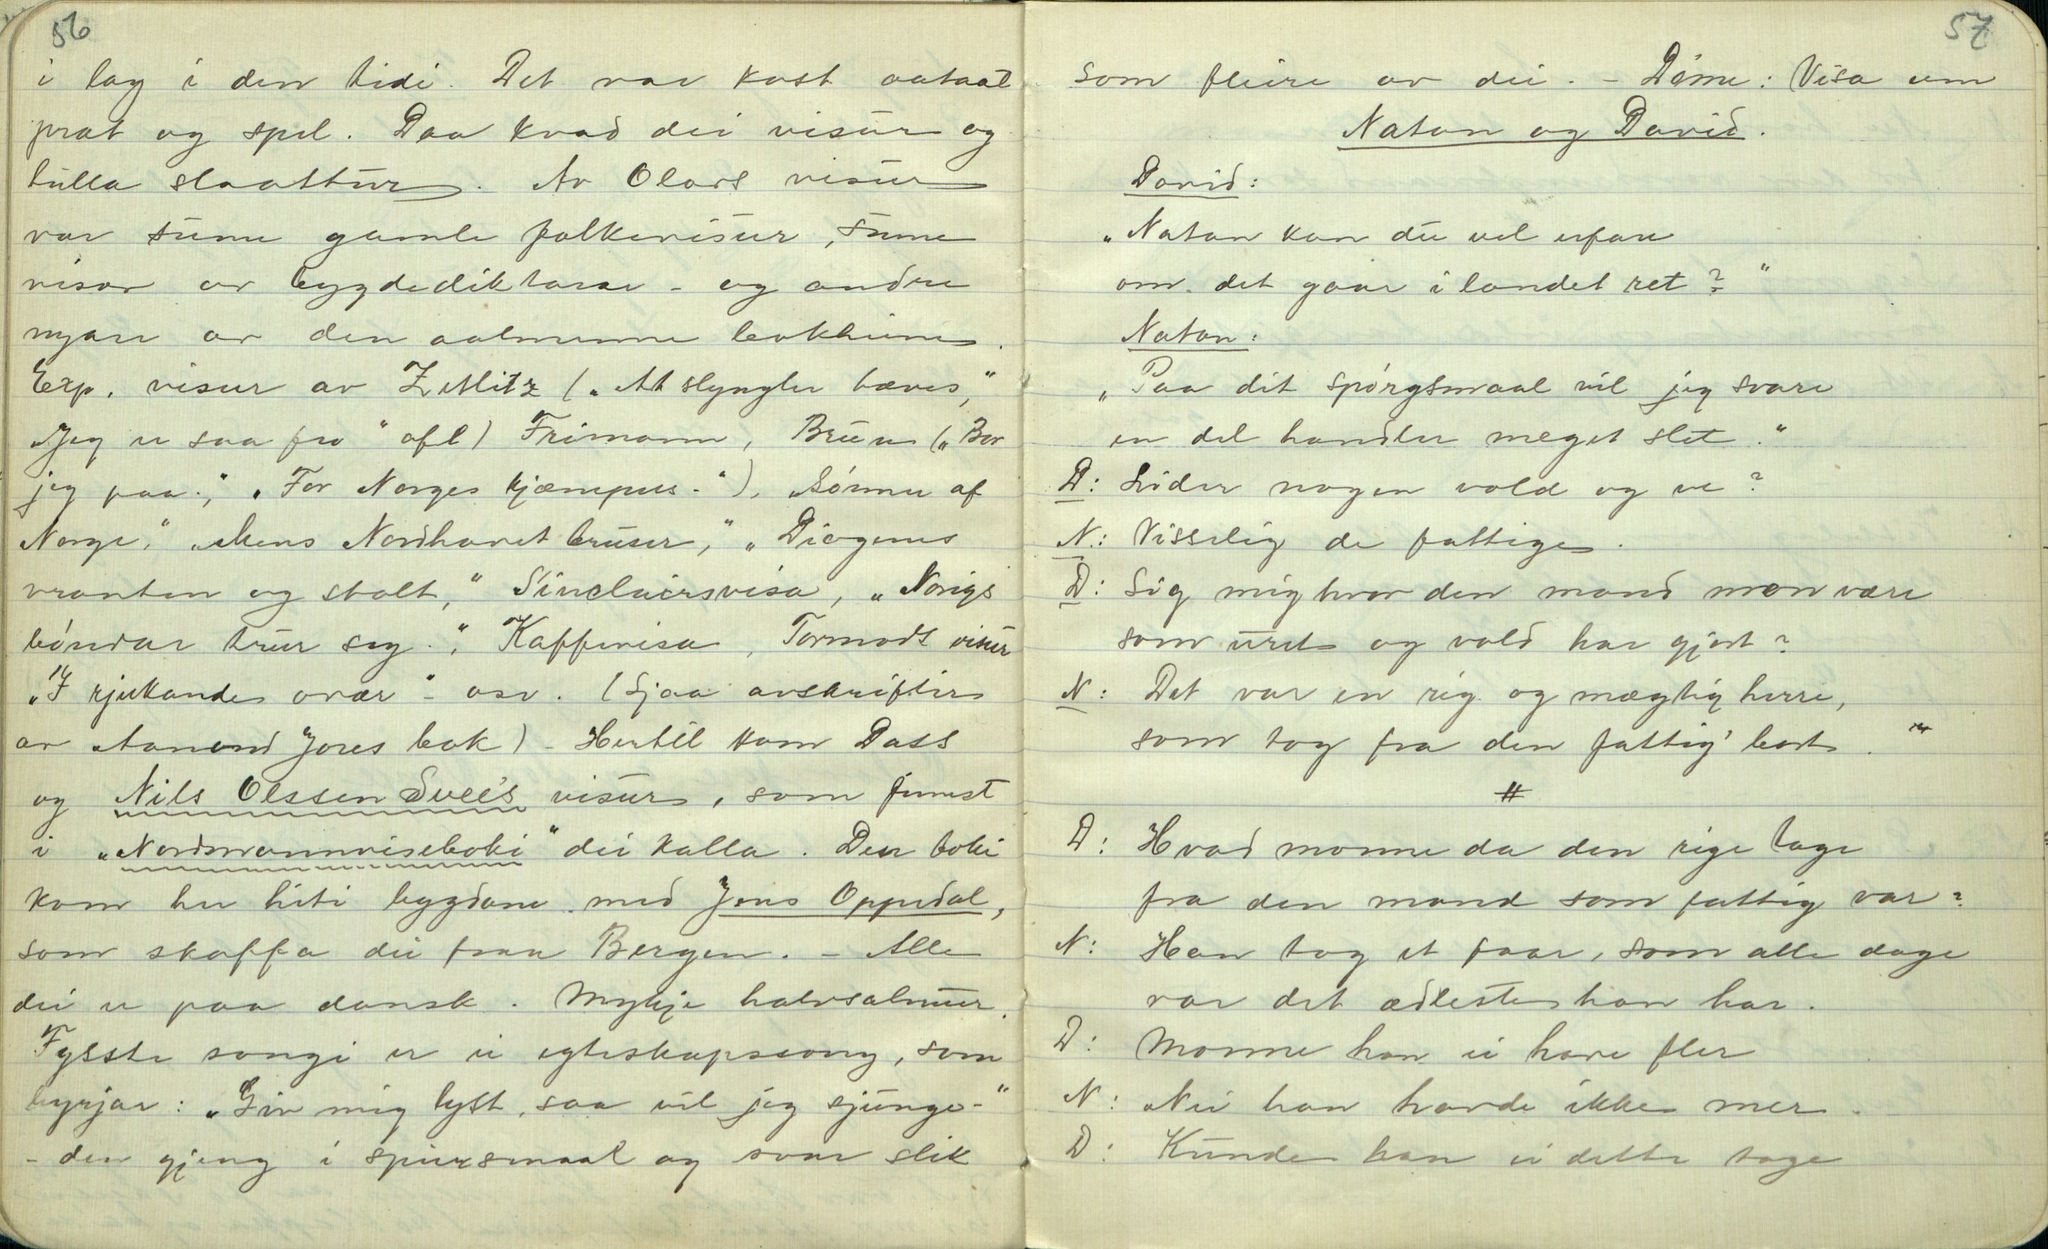 56
i lag i den tidi. Det var kast aataal
prat og spel. Daa kvad dei visur og
tulla slaattur. Av Olavs visur
var sume gamle folkevisur, sume
visor av bygdediktarar - og andre
nyare av den aalmenne
Exp. visur av Zetlitz („At slyngler hæves,"
„Jeg er saa fro" ofl) Frimann, Bruun („Bor
jeg paa.", „For Norges kjæmpers-"), Sønner af
Norge", „Mens Nordhavet bruser," „Diogenes
vranten og stolt," Sinclairsvisa, „Norigs
bóndar trur seg.", Kaffevisa, Tormods visur
„I rjukande avær"- osv. (Sjaa avskrifter
av Aamund Jores bok) - Hertil kom Dass
og Nils Olssen Svee's visur, som finnst
i „Nordmannviseboki" dei kalla. Den boki
kom her hiti bygdane med Jens Oppedal,
som skaffa dei fraa Bergen. - Alle
dei er paa dansk. Mykje halvsalmur.
Fyste songi er ei egteskapssong, som
byrjar: „Giv mig lyst, saa vil jeg sjunge-"
- den gjeng i spursmaal og svar slik
57
som fleire av dei. - Døme: Visa um
Natan og David.
David:
„Natan kan du vel erfare
om det gaar i landet ret?"
Natan:
„Paa dit spørgsmaal vil jeg svare
en del handler meget slet."
D: Lider nogen vold og ve?
N.: Visselig de fattige.
D: Sig mig hvor den mand mon være
som uret og vold har gjort?
N: Det var en rig og mægtig herre,
som tog fra den fattig' bort."
#
D: Hvad monne da den rige tage
fra den mand som fattig var?
N: Han tog et faar, som alle dage
var det ædleste han har.
D: Monne han ei have fler
N: Nei han havde ikke mer.
D: Kunde han ei dette tage